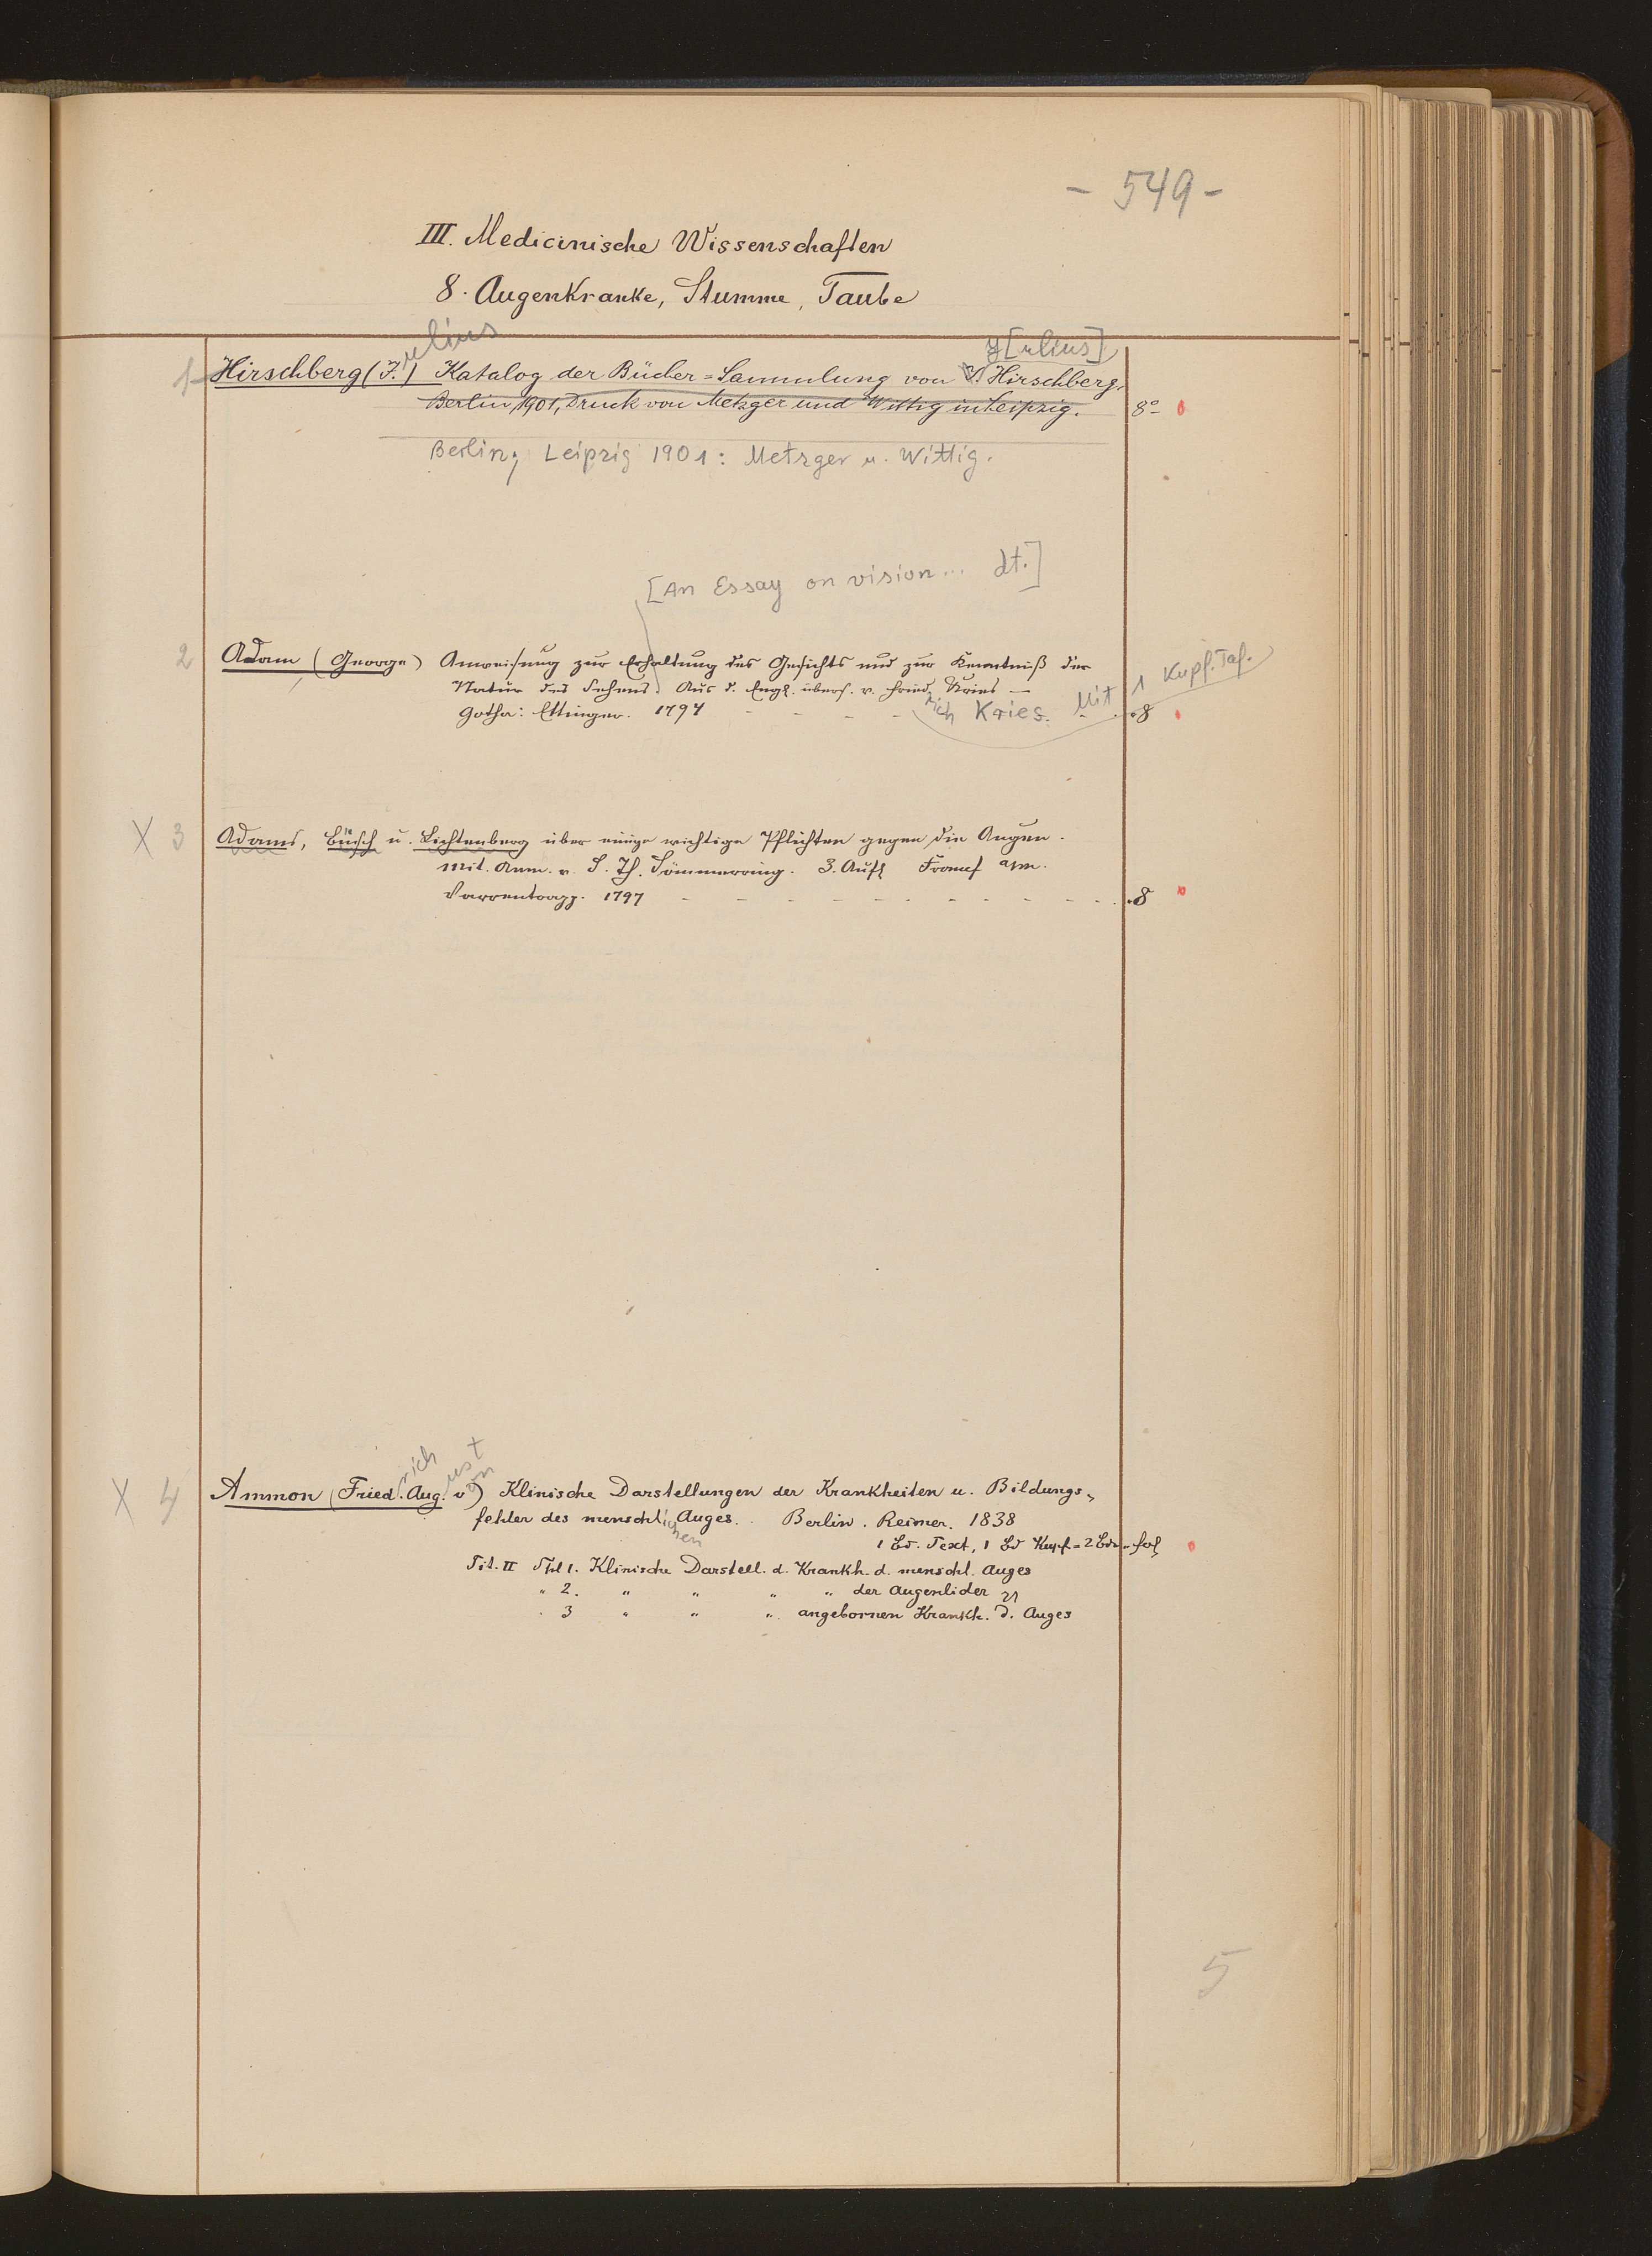 - 549 -
III. Medicinische Wissenschaften
8. Augenkranke, Stumme, Taube
ulius
J[ulius]
1 Hirschberg (J.) Katalog der Bücher=Sammlung von J. Hirschberg.
Berlin 1901, Druck von Metzger und Wittig in Leipzig. 8°
Berlin; Leipzig 1901: Metzger u. Wittig.
[An Essay on vision... dt.]
2 Adam (George) Anweisung zur Erhaltung des Gesichts und zur Kenntniß der
Natur des Sehens. Aus d. Engl. übers. v. Fried. Kries —
rich Kries. Mit 1 Kupf. Taf.
Gotha: Ettinger. 1794 - - - - 8
X 3 Adams, Büsch u. Lichtenberg über einige wichtige Pflichten gegen die Augen.
Mit. Anm. v. S. Th. Sömmerring. 3. Aufl Francf a/m.
Varrentrapp. 1797 - - - - - - - - - 8
rich ust on
X 4 Ammon (Fried. Aug. v) Klinische Darstellungen der Krankheiten u. Bildungs-
fehler des menschl. Auges. Berlin. Reimer. 1838
ichen
1 Bd. Text, 1 Bd Kupf. = 2 Bde fol
Tit. II Thl 1. Klinische Darstell. d. Krankh. d. menschl. Auges
" 2. " " " " der Augenlider
" 3 " " " angebornen Krankh. d. Auges
5